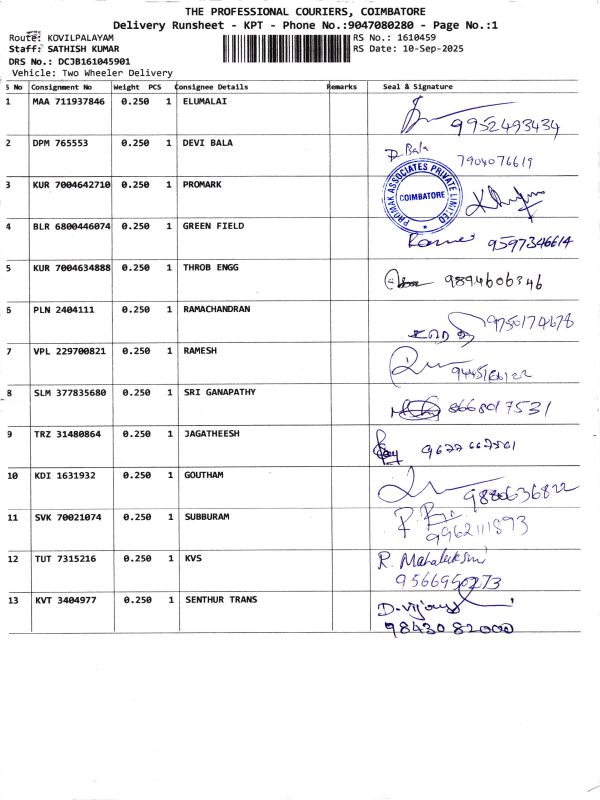 THE PROFESSIONAL COURIERS, COIMBATORE
Delivery Runsheet - KPT - Phone No.:9047080280 - Page No.:1
Route: KOVILPALAYAM
RS No.: 1610459
Staff: SATHISH KUMAR
RS Date: 10-Sep-2025
DRS No.: DCJB161045901
Vehicle: Two Wheeler Delivery
S No Consignment No Weight PCS Consignee Details Remarks Seal & Signature
1 MAA 711937846 0.250 1 ELUMALAI
9952493434
2 DPM 765553 0.250 1 DEVI BALA
D Bala
7904076619
3 KUR 7004642710 0.250 1 PROMARK
PROMAK ASSOCIATES PRIVATE LIMITED
COIMBATORE
4 BLR 6800446074 0.250 1 GREEN FIELD
9597346614
5 KUR 7004634888 0.250 1 THROB ENGG
9894606346
6 PLN 2404111 0.250 1 RAMACHANDRAN
9750174678
7 VPL 229700821 0.250 1 RAMESH
8 SLM 377835680 0.250 1 SRI GANAPATHY
8668017531
9 TRZ 31480864 0.250 1 JAGATHEESH
10 KDI 1631932 0.250 1 GOUTHAM
9880636822
11 SVK 70021074 0.250 1 SUBBURAM
9962111893
12 TUT 7315216 0.250 1 KVS
R. Mahalakshmi
9566950273
13 KVT 3404977 0.250 1 SENTHUR TRANS
D. Vijay
9843082000